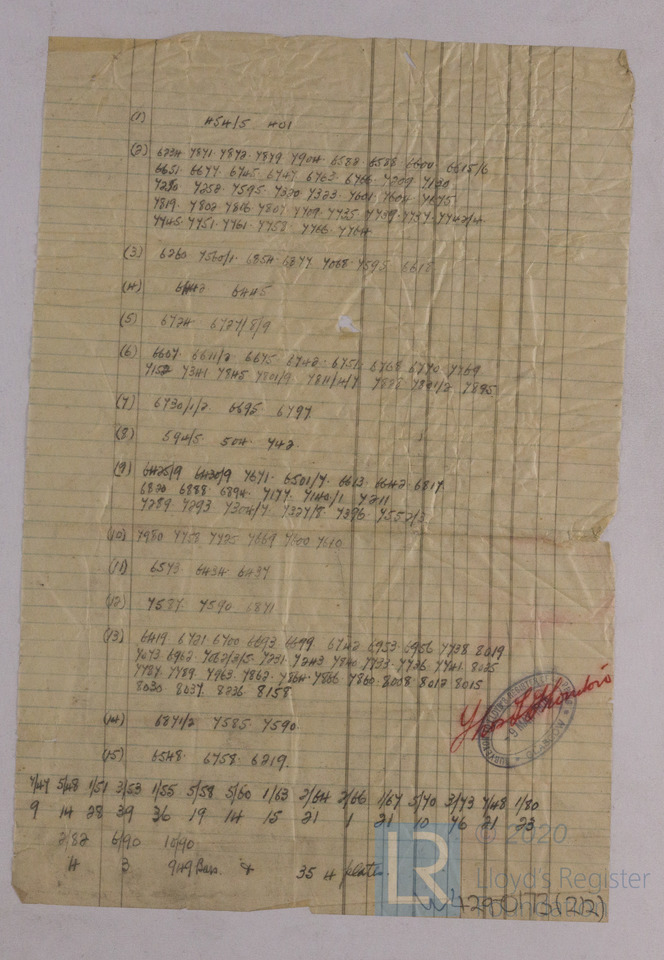 (1) 454/5 401
(2) 6234 7871 7872 7879 7904 6582 6588 6600 6615/6
6651 6677 6745 6747 6763 6766 7209 7120
7290 7252 7595 7320 7323 7601 7604 7675
7819 7802 7806 7807 7709 7735 7739 7737 7742/4
7745 7751 7761 7758 7766 7764
(3) 6260 7560/1 6854 6877 7068 7595 6618
(4) 6442 6445
(5) 6724 6727/8/9
(6) 6607 6611/2 6675 6742 6751 6768 6770 7269
7152 7341 7845 7801/9 7811/4/7 7828 7831/2 7895
(7) 6730/1/2 6695 6797
(8) 594/5 504 742
(9) 6425/9 6430/9 7671 6501/7 6613 6642 6817
6820 6888 6894 7177 7140/1 7211
7289 7293 7304/7 7327/8 7396 7552/3
(10) 7980 7758 7725 7669 7600 7610
(11) 6573 6434 6437
(12) 7587 7590 6871
(13) 6419 6721 6700 6693 6699 6742 6953 6956 7738 8019
7073 6962 7062/3/5 7231 7243 7840 7733 7736 7741 8025
7787 7789 7963 7862 7864 7866 7860 8008 8012 8015
8030 8037 8236 8158
(14) 6871/2 7585 7590
(15) 6548 6758 6219
7/47 5/48 1/51 3/53 1/55 5/58 5/60 1/63 2/64 2/66 1/67 5/70 3/73 7/48 1/80
9 14 28 39 36 19 14 15 21 1 21 10 46 21 23
2/82 6/90 10/90
4 3 949 Bars & 35 4 plates.
© 2020
LR Lloyd's Register
W429-0113 (2/2)